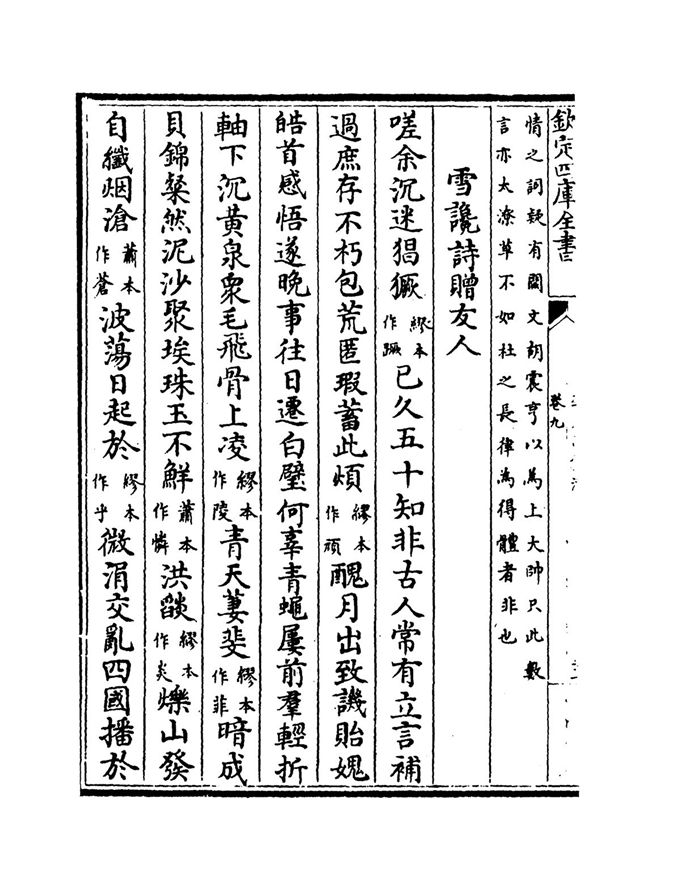 欽定四庫全書
卷九
情之詞疑有闕文胡震亨以為上大帥只此數
言亦太潦草不如杜之長律為得體者非也
雪讒詩贈友人
嗟余沉迷猖獗繆本作蹶已久五十知非古人常有立言補
過庶存不朽包荒匿瑕蓄此煩繆本作頑醜月出致譏貽媿
皓首感悟遂晚事往日遷白璧何辜青蠅屢前羣輕折
軸下沉黃泉衆毛飛骨上凌繆本作陵青天萋斐繆本作菲暗成
貝錦粲然泥沙聚埃珠玉不鮮蕭本作憐洪燄繆本作炎爍山發
自纖烟滄蕭本作蒼波蕩日起於繆本作乎微涓交亂四國播於